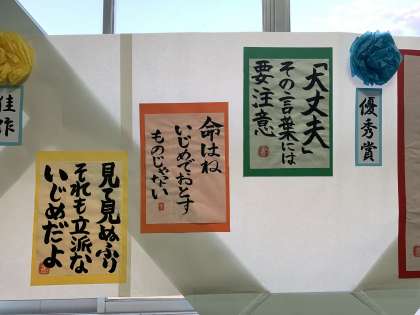 優秀賞
「大丈夫」
その言葉には
要注意
命はね
いじめでおとす
ものじゃない
佳作
見て見ぬふり
それも立派な
いじめだよ